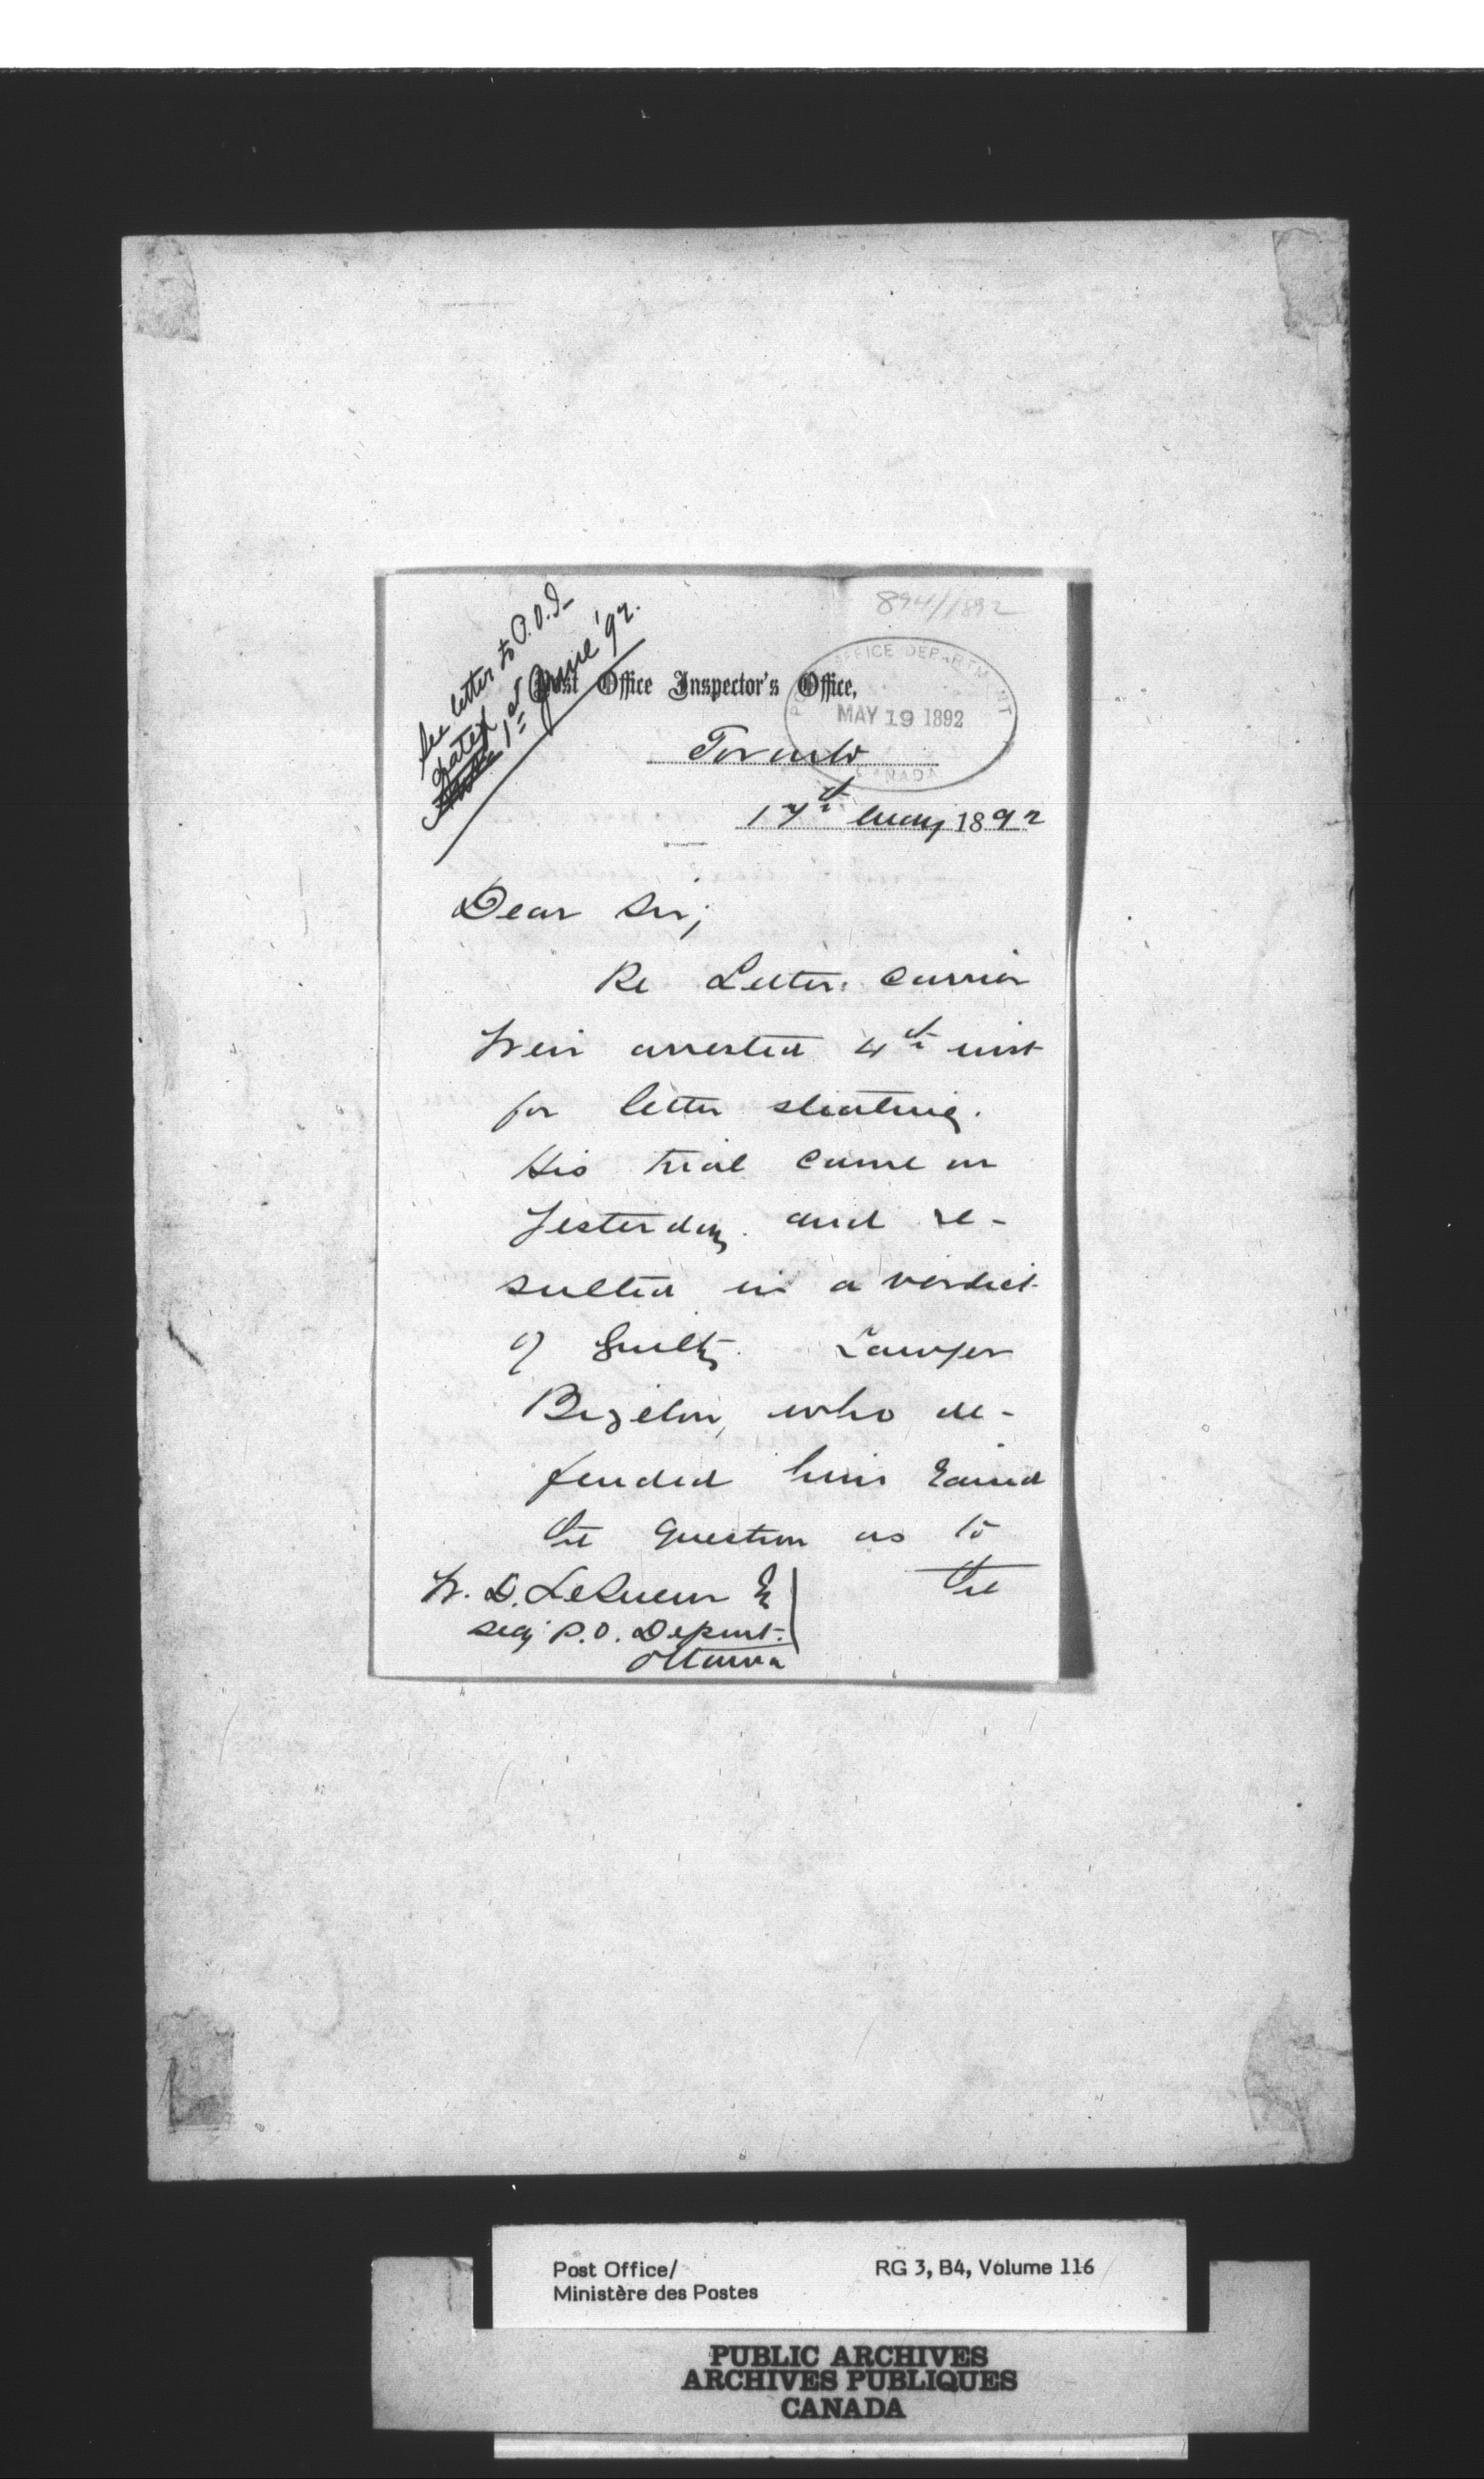 894/1892
See letter to P.O.I.
dated
1st June '92.
Post Office Inspector's Office,
POST OFFICE DEPARTMENT
MAY 19 1892
CANADA
Toronto
17th May 1892
Dear Sir;
Re Letter Carrier
Weir arrested 4th inst
for letter stealing.
His trial came on
Yesterday and re-
sulted in a verdict
of Guilty. Lawyer
Bigelow, who de-
fended him raised
the question as to
the
W. D. LeSueur Esq
Secy P.O. Depmt.
Ottawa
Post Office/
Ministère des Postes
RG 3, B4, Volume 116
PUBLIC ARCHIVES
ARCHIVES PUBLIQUES
CANADA